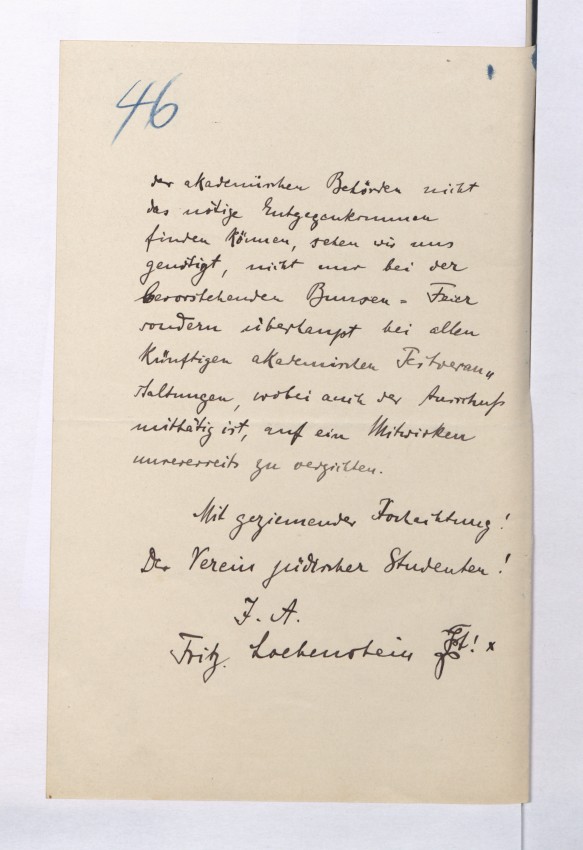 46
der akademischen Behörden nicht
das nötige Entgegenkommen
finden können, sehen wir uns
genötigt, nicht nur bei der
bevorstehenden Bunsen = Feier
sondern überhaupt bei allen
künftigen akademischen Festveran„
staltungen, wobei auch der Ausschuß
mitthätig ist, auf ein Mitwirken
unsererseits zu verzichten.
Mit geziemender Hochachtung!
Der Verein jüdischer Studenten!
I. A.
Fritz Loebenstein